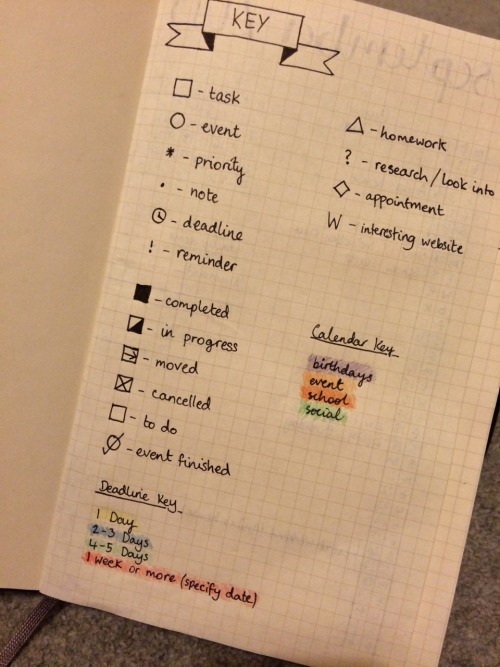 KEY
□ - task
○ - event
* - priority
• - note
- deadline
! - reminder
■ - completed
- in progress
- moved
- cancelled
□ - to do
- event finished
△ - homework
? - research/look into
◇ - appointment
W - interesting website
Calendar Key
birthdays
event
school
social
Deadline Key
1 Day
2-3 Days
4-5 Days
1 week or more (specify date)